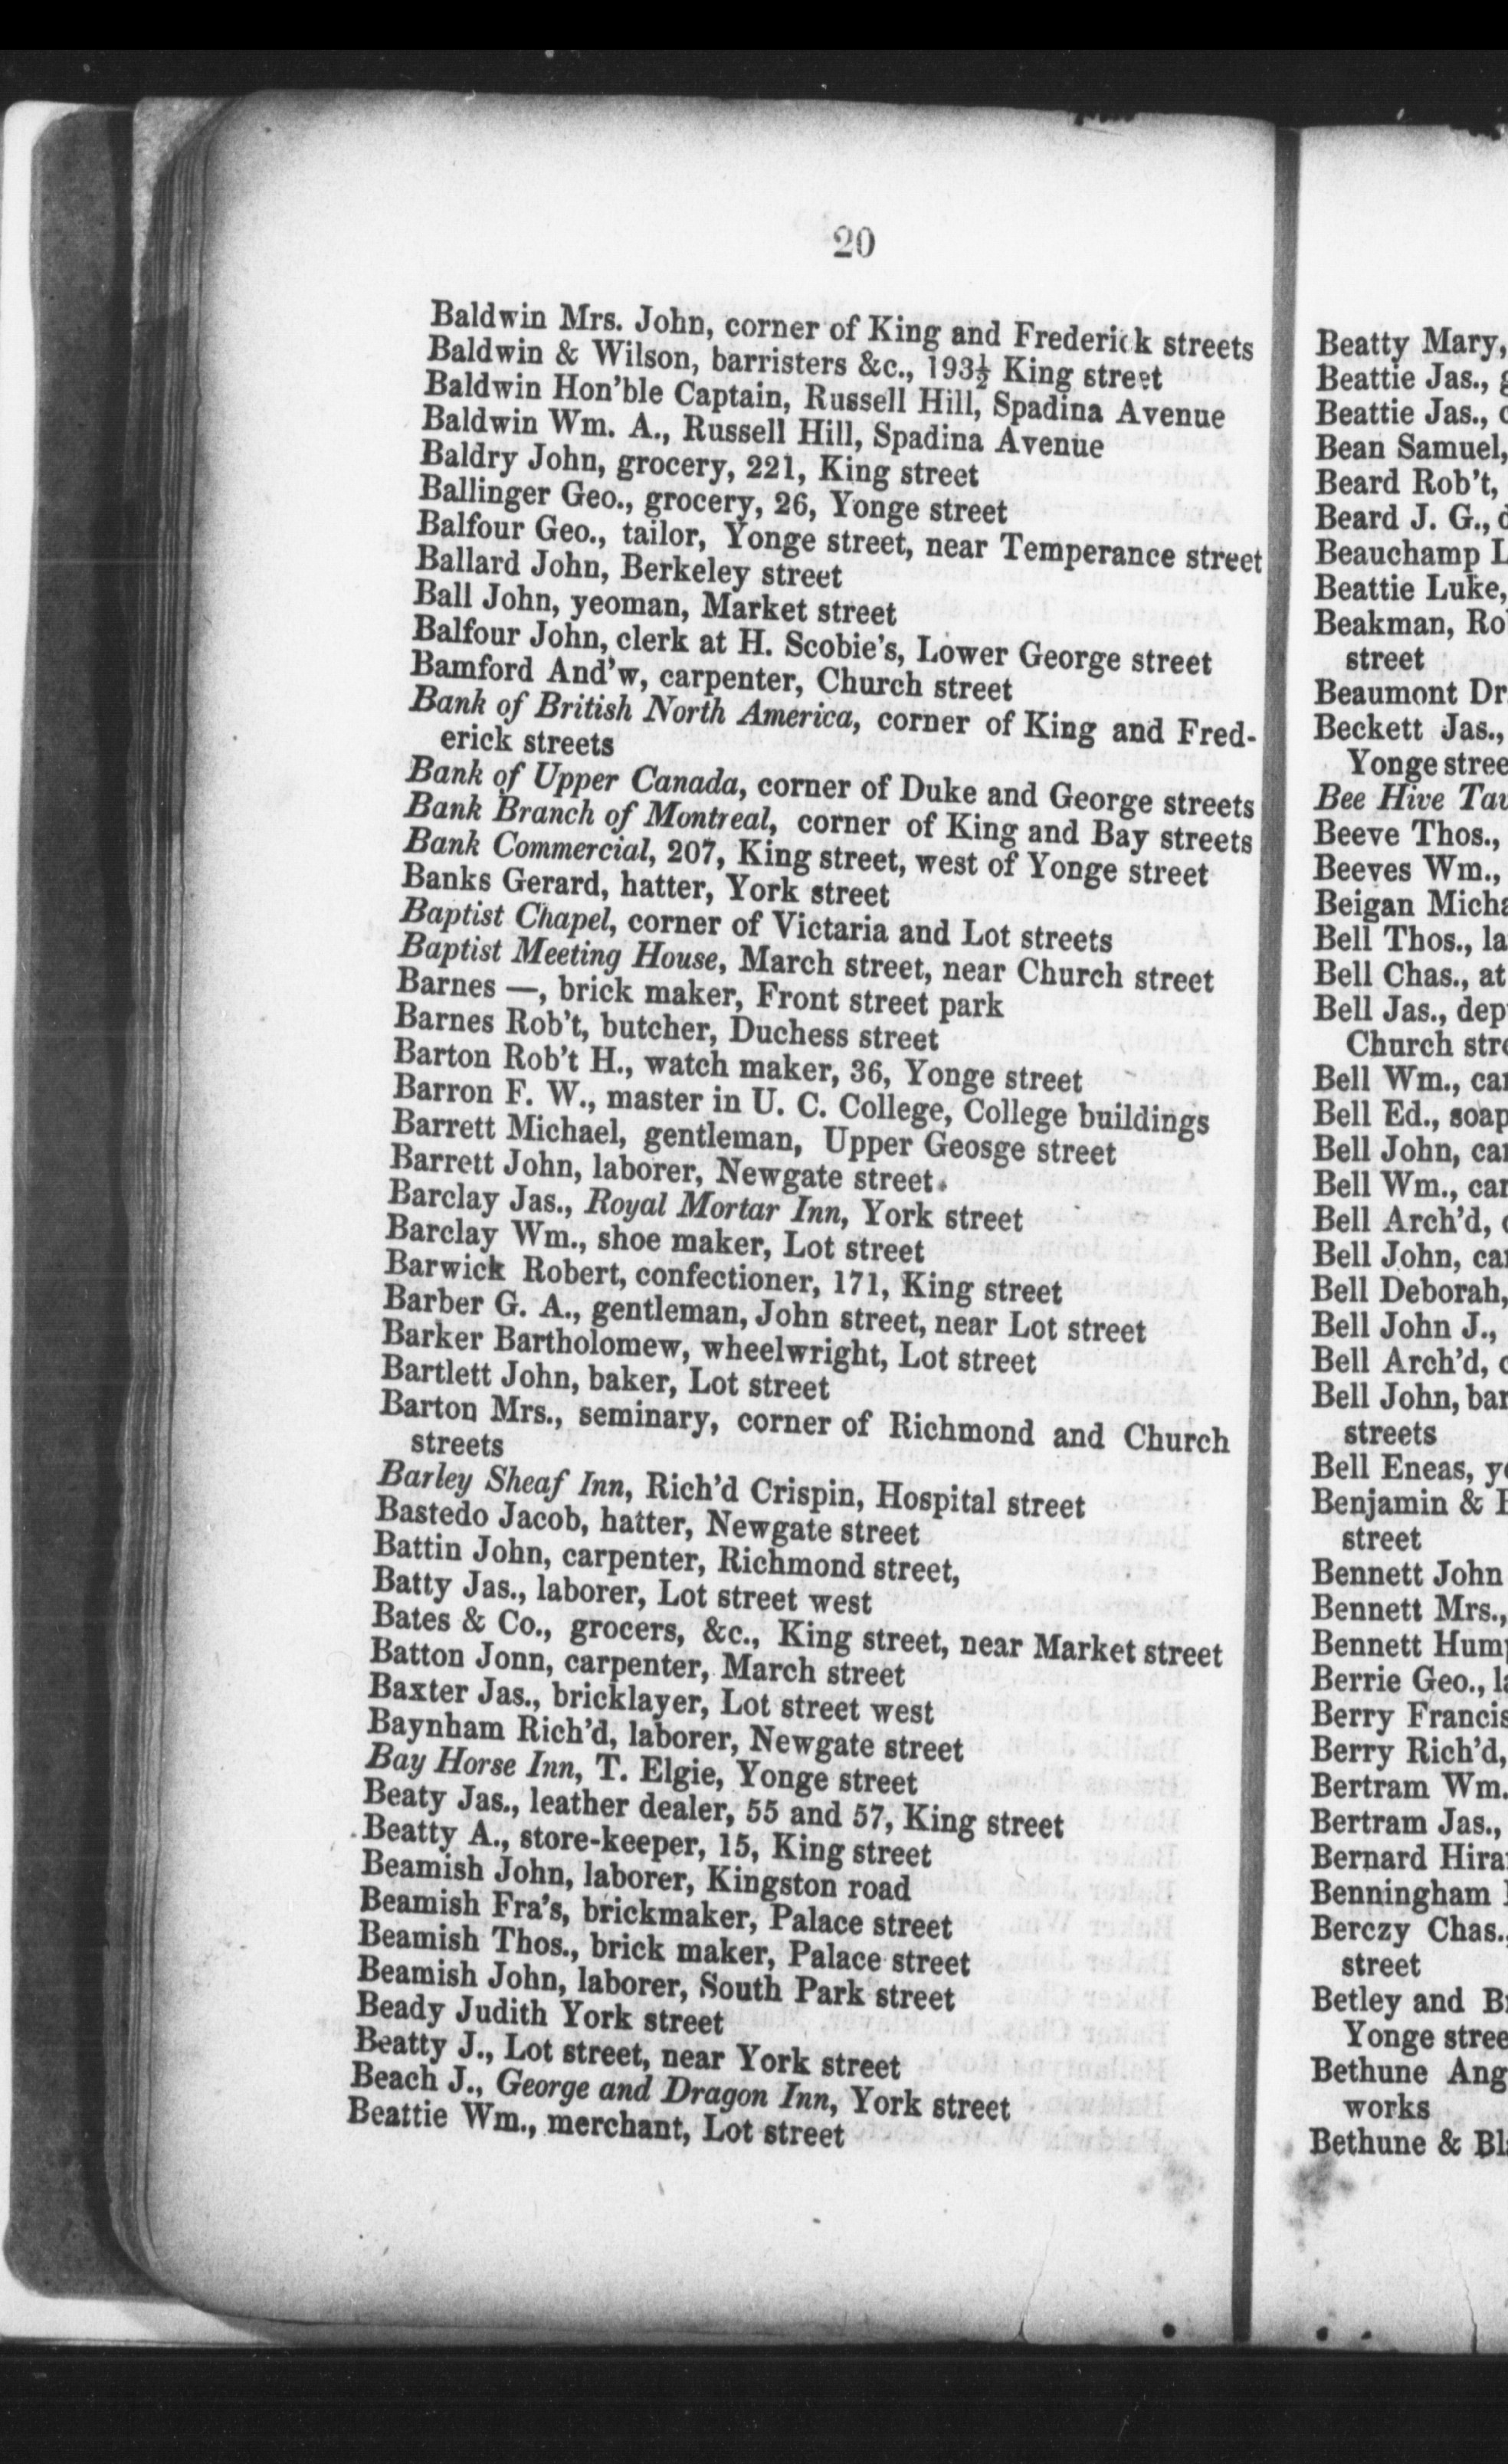 20
Baldwin Mrs. John, corner of King and Frederick streets
Baldwin & Wilson, barristers &c., 193½ King street
Baldwin Hon'ble Captain, Russell Hill, Spadina Avenue
Baldwin Wm. A., Russell Hill, Spadina Avenue
Baldry John, grocery, 221, King street
Ballinger Geo., grocery, 26, Yonge street
Balfour Geo., tailor, Yonge street, near Temperance street
Ballard John, Berkeley street
Ball John, yeoman, Market street
Balfour John, clerk at H. Scobie's, Lower George street
Bamford And'w, carpenter, Church street
Bank of British North America, corner of King and Fred-
erick streets
Bank of Upper Canada, corner of Duke and George streets
Bank Branch of Montreal, corner of King and Bay streets
Bank Commercial, 207, King street, west of Yonge street
Banks Gerard, hatter, York street
Baptist Chapel, corner of Victaria and Lot streets
Baptist Meeting House, March street, near Church street
Barnes —, brick maker, Front street park
Barnes Rob't, butcher, Duchess street
Barton Rob't H., watch maker, 36, Yonge street
Barron F. W., master in U. C. College, College buildings
Barrett Michael, gentleman, Upper Geosge street
Barrett John, laborer, Newgate street.
Barclay Jas., Royal Mortar Inn, York street
Barclay Wm., shoe maker, Lot street
Barwick Robert, confectioner, 171, King street
Barber G. A., gentleman, John street, near Lot street
Barker Bartholomew, wheelwright, Lot street
Bartlett John, baker, Lot street
Barton Mrs., seminary, corner of Richmond and Church
streets
Barley Sheaf Inn, Rich'd Crispin, Hospital street
Bastedo Jacob, hatter, Newgate street
Battin John, carpenter, Richmond street,
Batty Jas., laborer, Lot street west
Bates & Co., grocers, &c., King street, near Market street
Batton Jonn, carpenter, March street
Baxter Jas., bricklayer, Lot street west
Baynham Rich'd, laborer, Newgate street
Bay Horse Inn, T. Elgie, Yonge street
Beaty Jas., leather dealer, 55 and 57, King street
Beatty A., store-keeper, 15, King street
Beamish John, laborer, Kingston road
Beamish Fra's, brickmaker, Palace street
Beamish Thos., brick maker, Palace street
Beamish John, laborer, South Park street
Beady Judith York street
Beatty J., Lot street, near York street
Beach J., George and Dragon Inn, York street
Beattie Wm., merchant, Lot street
Beatty Mary,
Beattie Jas.,
Beattie Jas.,
Bean Samuel,
Beard Rob't,
Beard J. G.,
Beauchamp
Beattie Luke,
Beakman,
street
Beaumont Dr
Beckett Jas.,
Yonge
Bee Hive
Beeve Thos.,
Beeves Wm.,
Beigan
Bell Thos.,
Bell Chas., at
Bell Jas.,
Church
Bell Wm.,
Bell Ed., soap
Bell John,
Bell Wm.,
Bell Arch'd,
Bell John,
Bell Deborah,
Bell John J.,
Bell Arch'd,
Bell John,
streets
Bell Eneas,
Benjamin &
street
Bennett John
Bennett Mrs.,
Bennett
Berrie Geo.,
Berry Francis
Berry Rich'd,
Bertram Wm.
Bertram Jas.,
Bernard
Benningham
Berczy Chas.,
street
Betley and
Yonge
Bethune
works
Bethune &